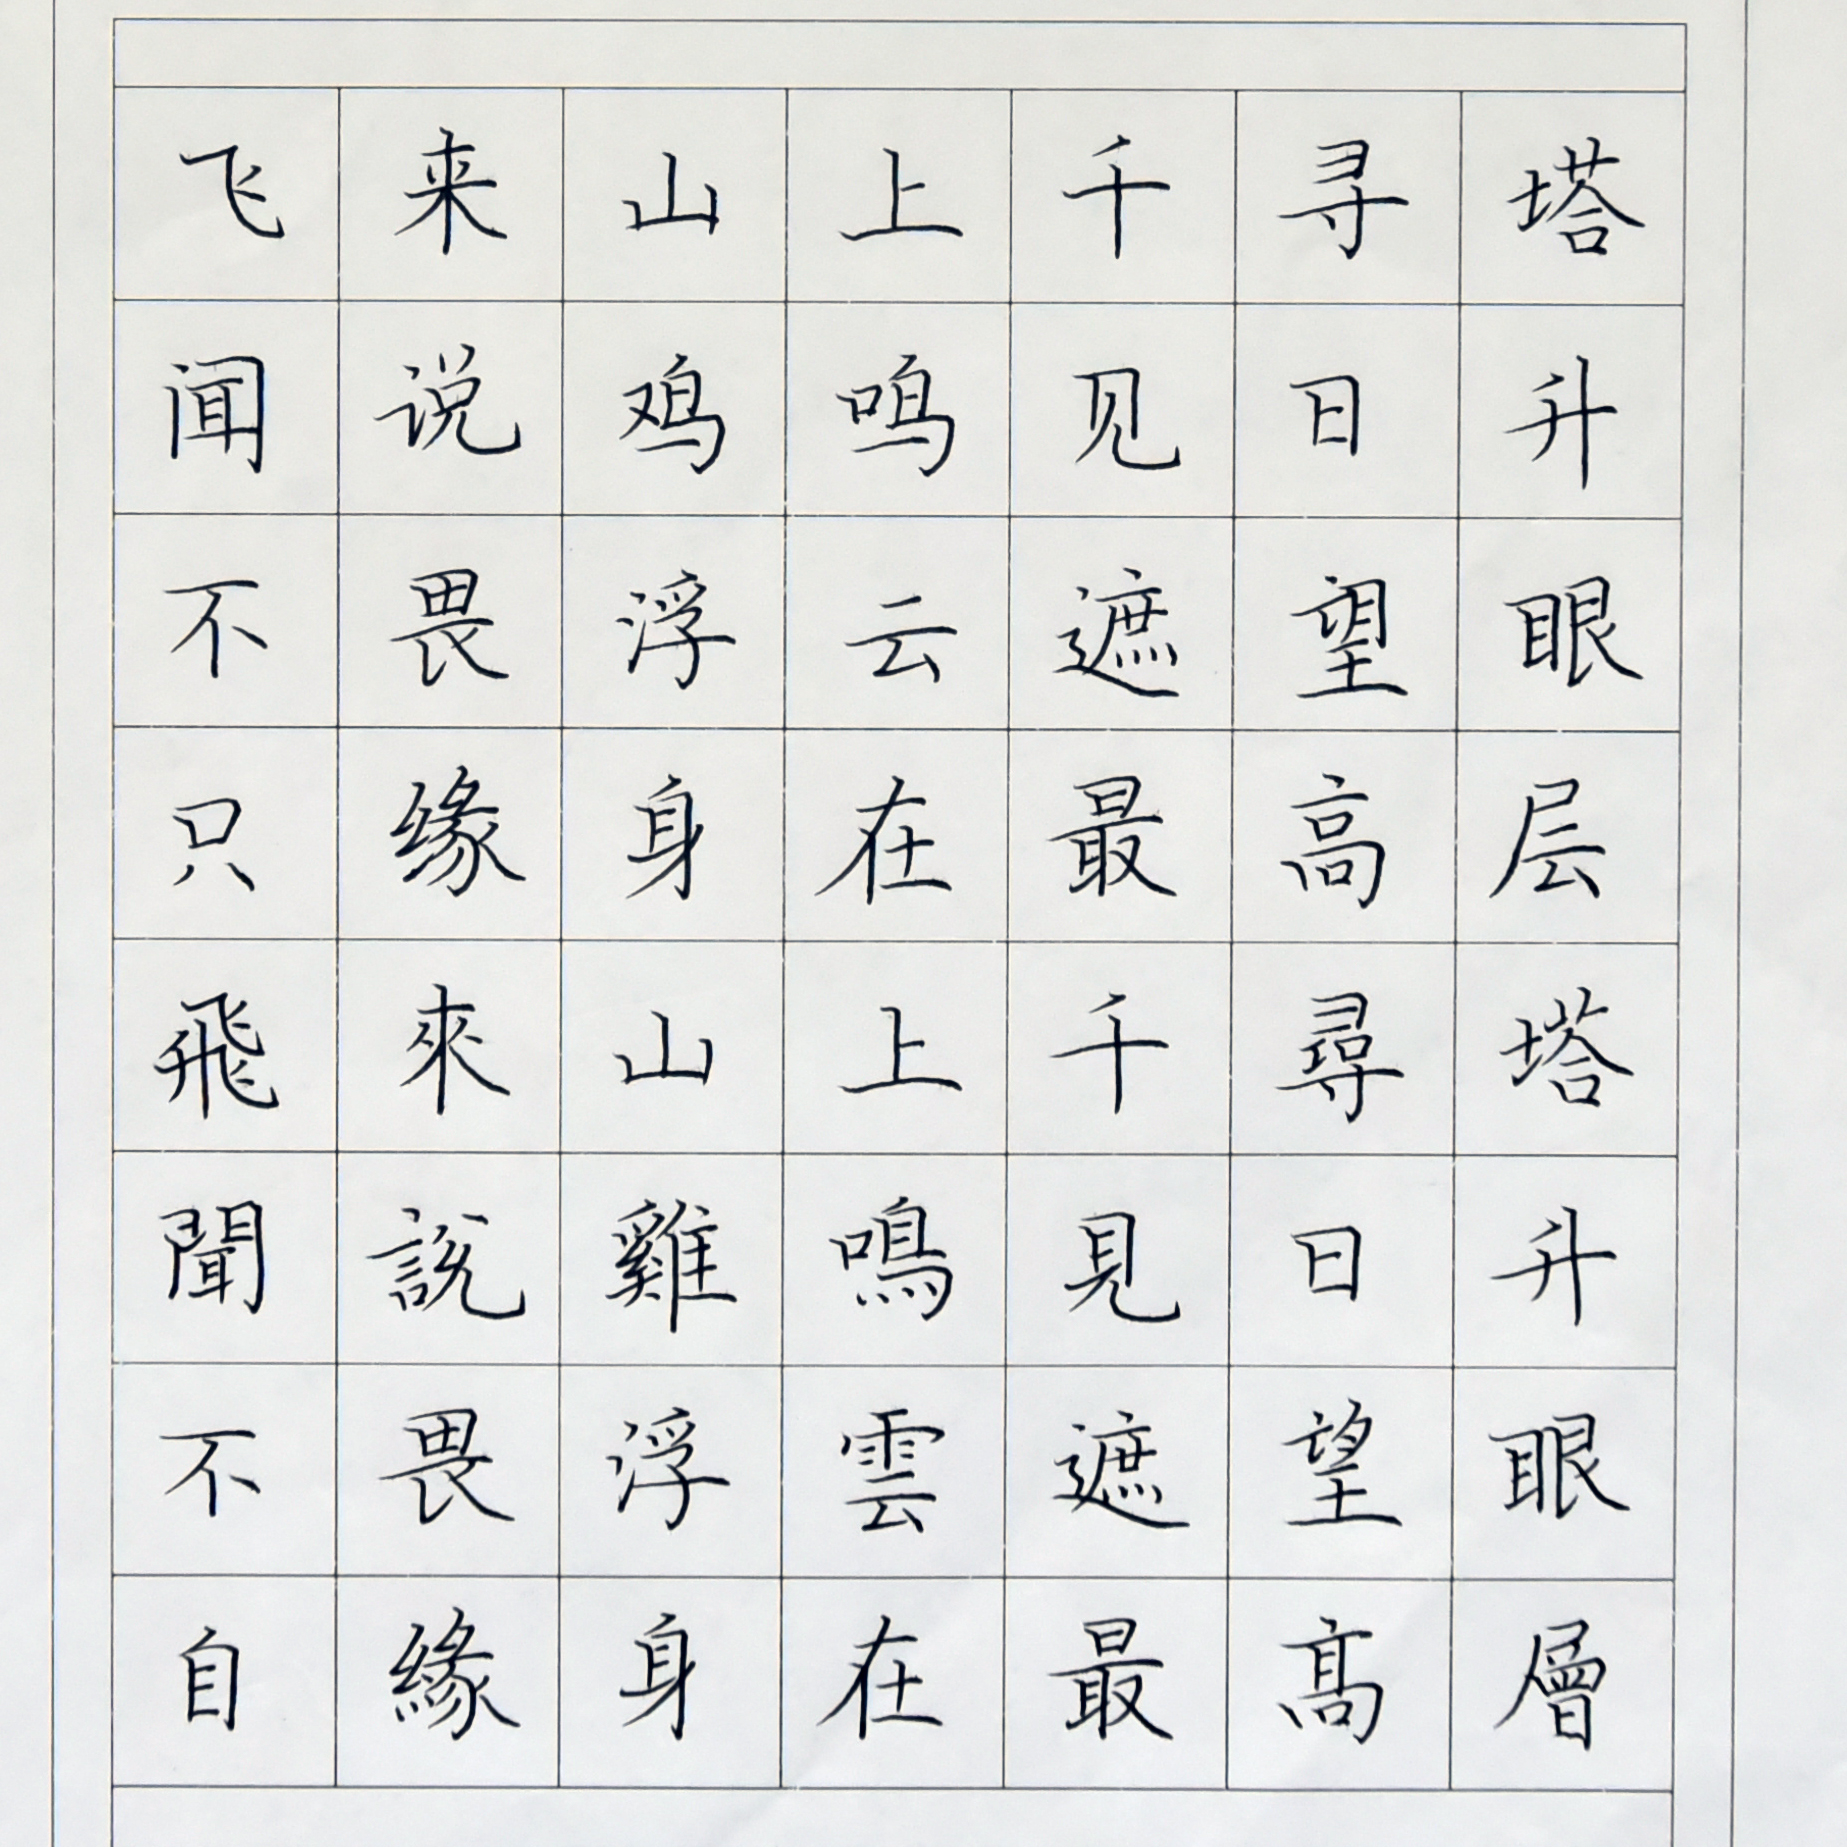 飞来山上千寻塔
闻说鸡鸣见日升
不畏浮云遮望眼
只缘身在最高层
飛來山上千尋塔
聞說雞鳴見日升
不畏浮雲遮望眼
自緣身在最髙層